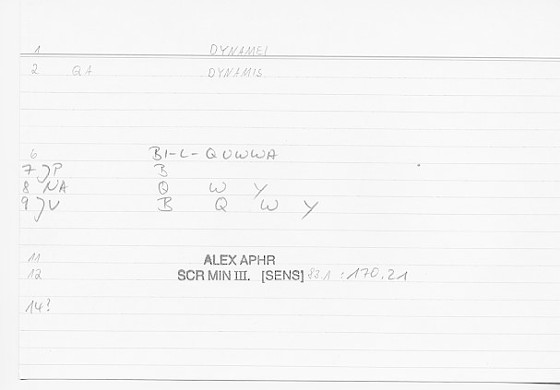 1 DYNAMEI
2 QA DYNAMIS
6 BI-L-QUWWA
7 JP B
8 NA Q W Y
9 JV B Q W Y
11 ALEX APHR
12 SCR MIN III. [SENS] 83.1 :170.21
14?